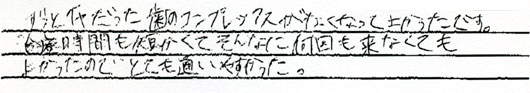 ずっとイヤだった歯のコンプレックスがなくなって上かったです。
治療時間も短かくてそんなに何回も来なくても
よかったのでとても通いやすかった。